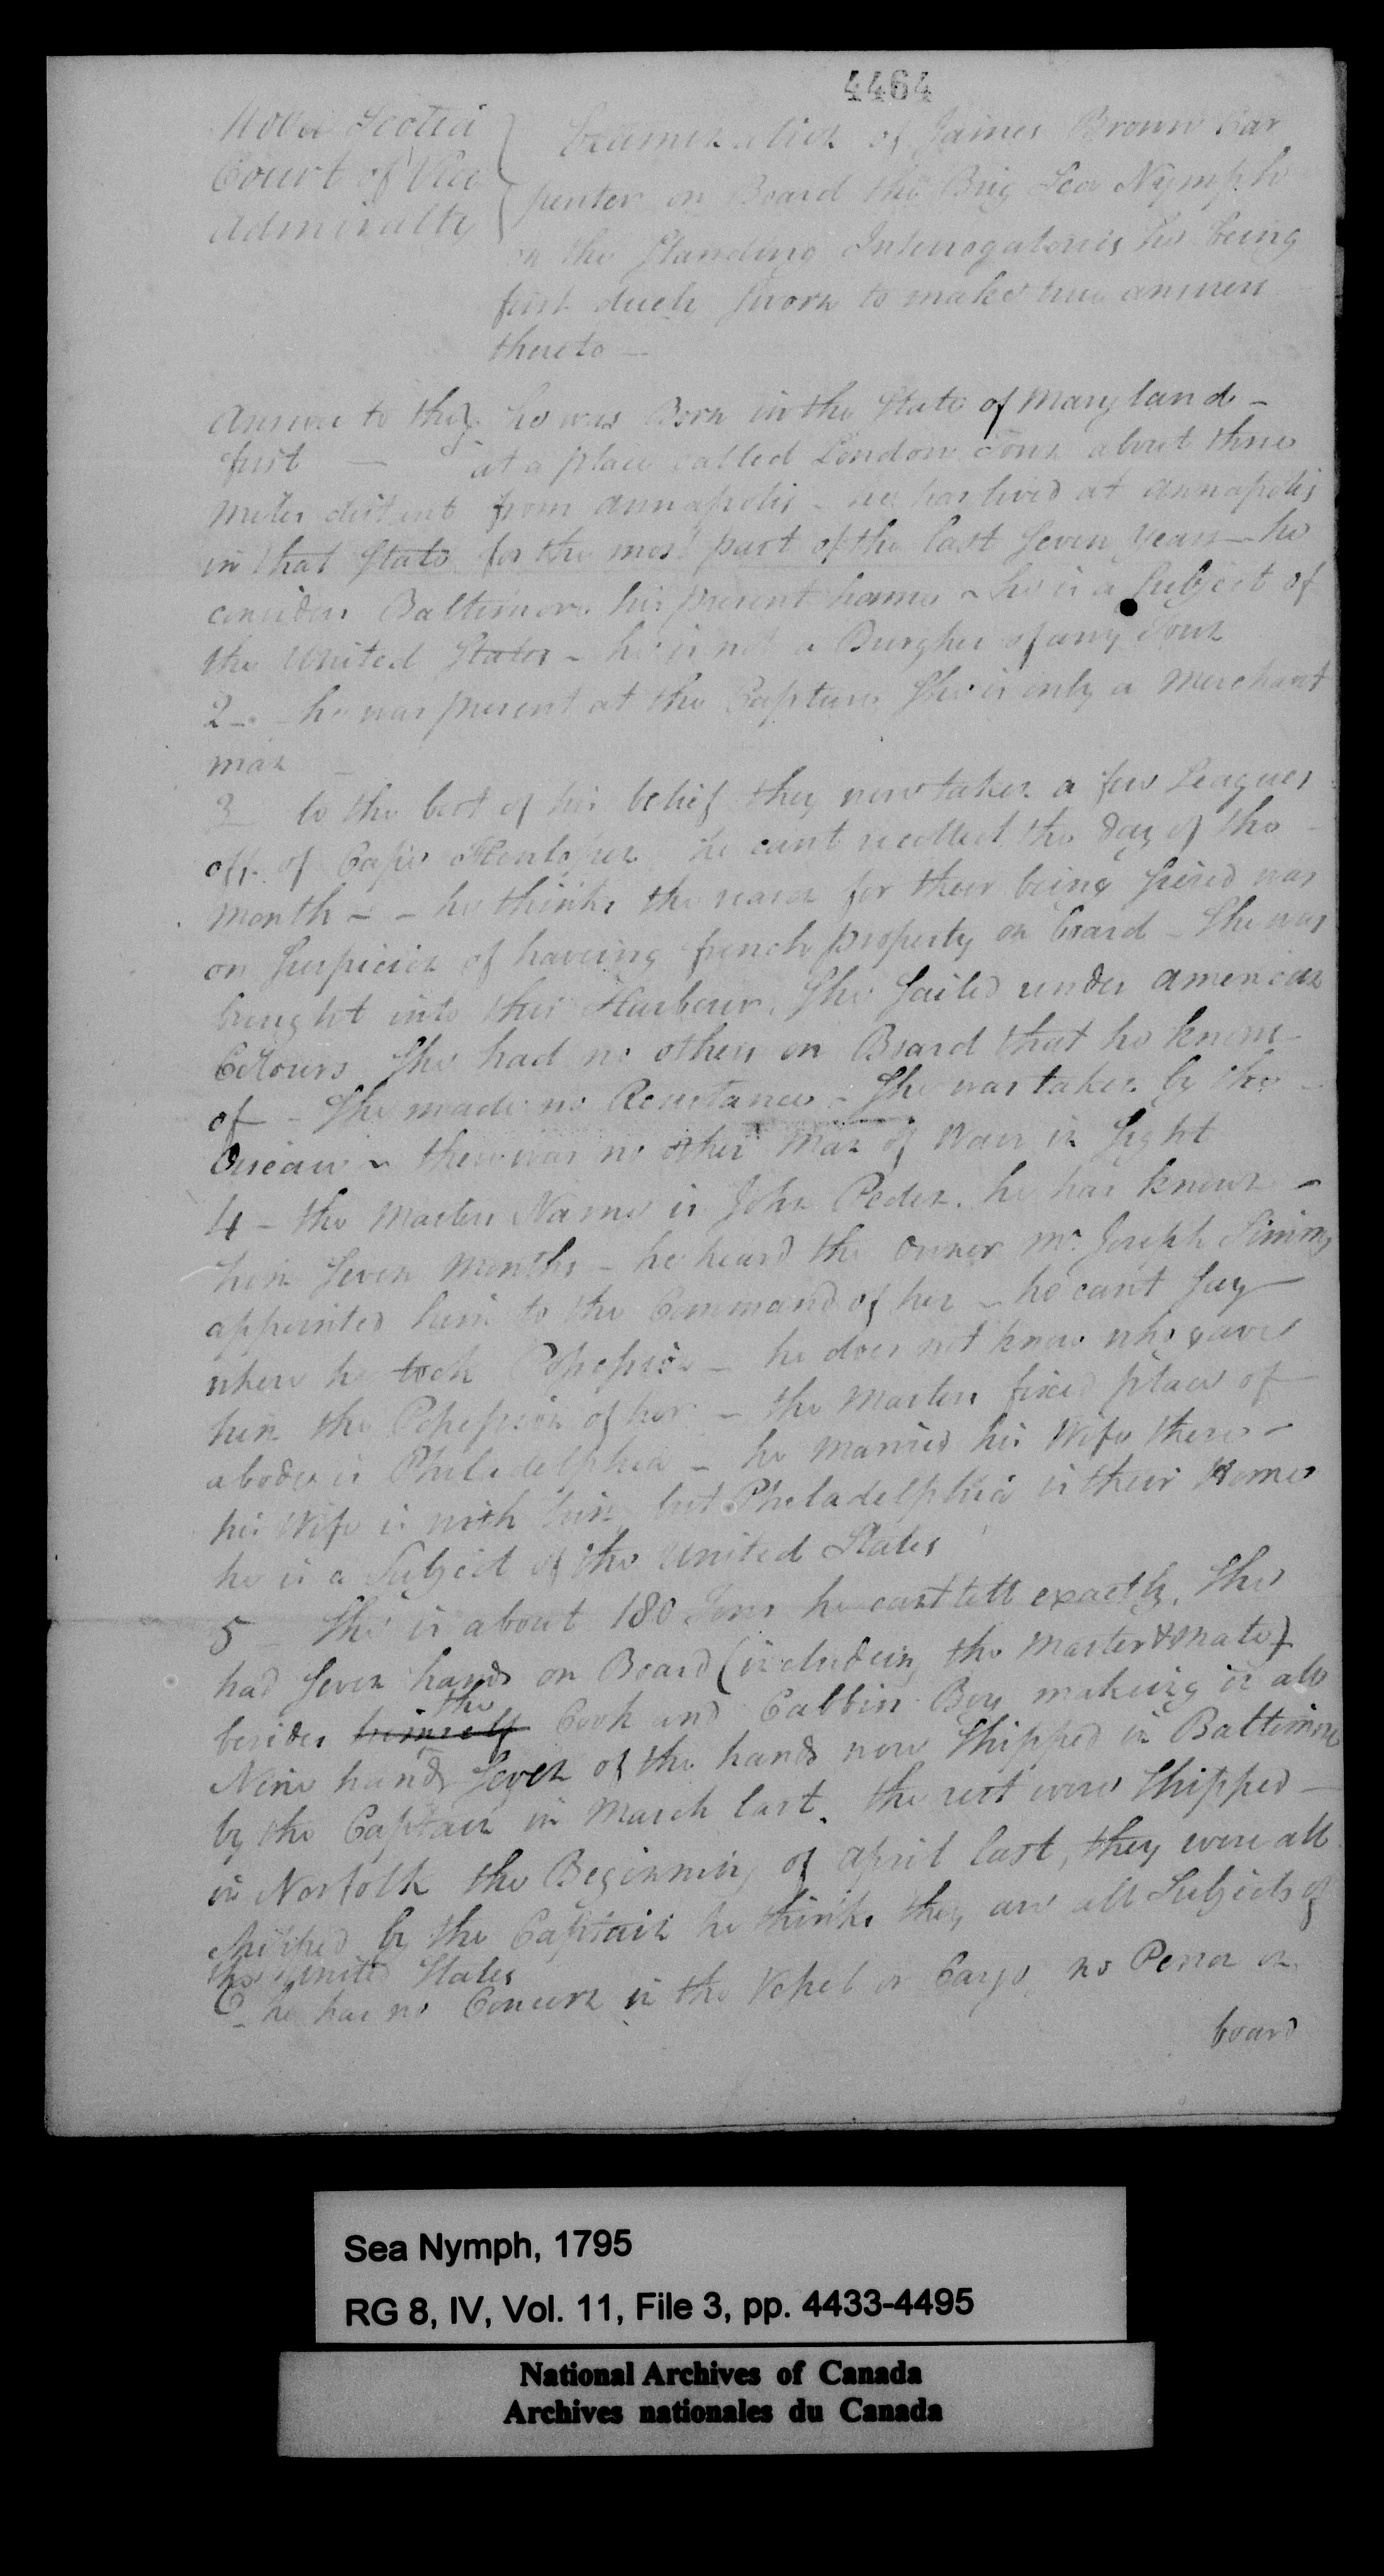 4464
Nova Scotia
Court of Vice
Admiralty
Examination of James Brown Car
penter on Board the Brig Sea Nymph
on the Standing Interrogatories he being
first duely sworn to make true answers
thereto —
Answer to the he was Born in the State of Maryland —
first — at a place called London Toun about three
miles distant from Annapolis - he has lived at Annapolis
in that State for the most part of the last seven years — he
considers Baltimore his present home - he is a Subject of
the United States - he is not a Burgher of any Toun
2 - he was present at the Capture, She is only a Merchant
man —
3 to the best of his belief they were taken a few Leagues
off of Cape Henlopen he cant recollect the day of the
Month - - he thinks the reason for their being seized was
on Suspicion of haveing french property on board - She was
brought into this Harbour. She Sailed under American
Colours She had no others on Board that he knows
of - She made no Resistance - She was taken by the
- there was no other Man of Warr in Sight
4 - the Masters Name is John Peden. he has known -
him Seven Months - he heard the owner Mr. Joseph Simms
appointed him to the Command of her - he cant say
where he took Possession - he does not know who gave
him the Possession of her - the Masters fixed place of
abode is Philadelphia - he married his Wife there -
his Wife is with him but Philadelphia is their Home
he is a Subject of the United States
5 - She is about 180 Tons he cant tell exactly. She
had seven hands on Board (includeing the Master & Mate)
the
besides himself Cook and Cabbin Boy making in all
Nine hands Seven of the hands were Shipped in Baltimore
by the Captain in March last. the rest were Shipped -
in Norfolk the Beginning of April last, they were all
shipped by the Captain he thinks they are all Subjects of
the United States
6 - he has no Concern in the Vessel or Cargo no Person on
board
Sea Nymph, 1795
RG 8, IV, Vol. 11, File 3, pp. 4433-4495
National Archives of Canada
Archives nationales du Canada